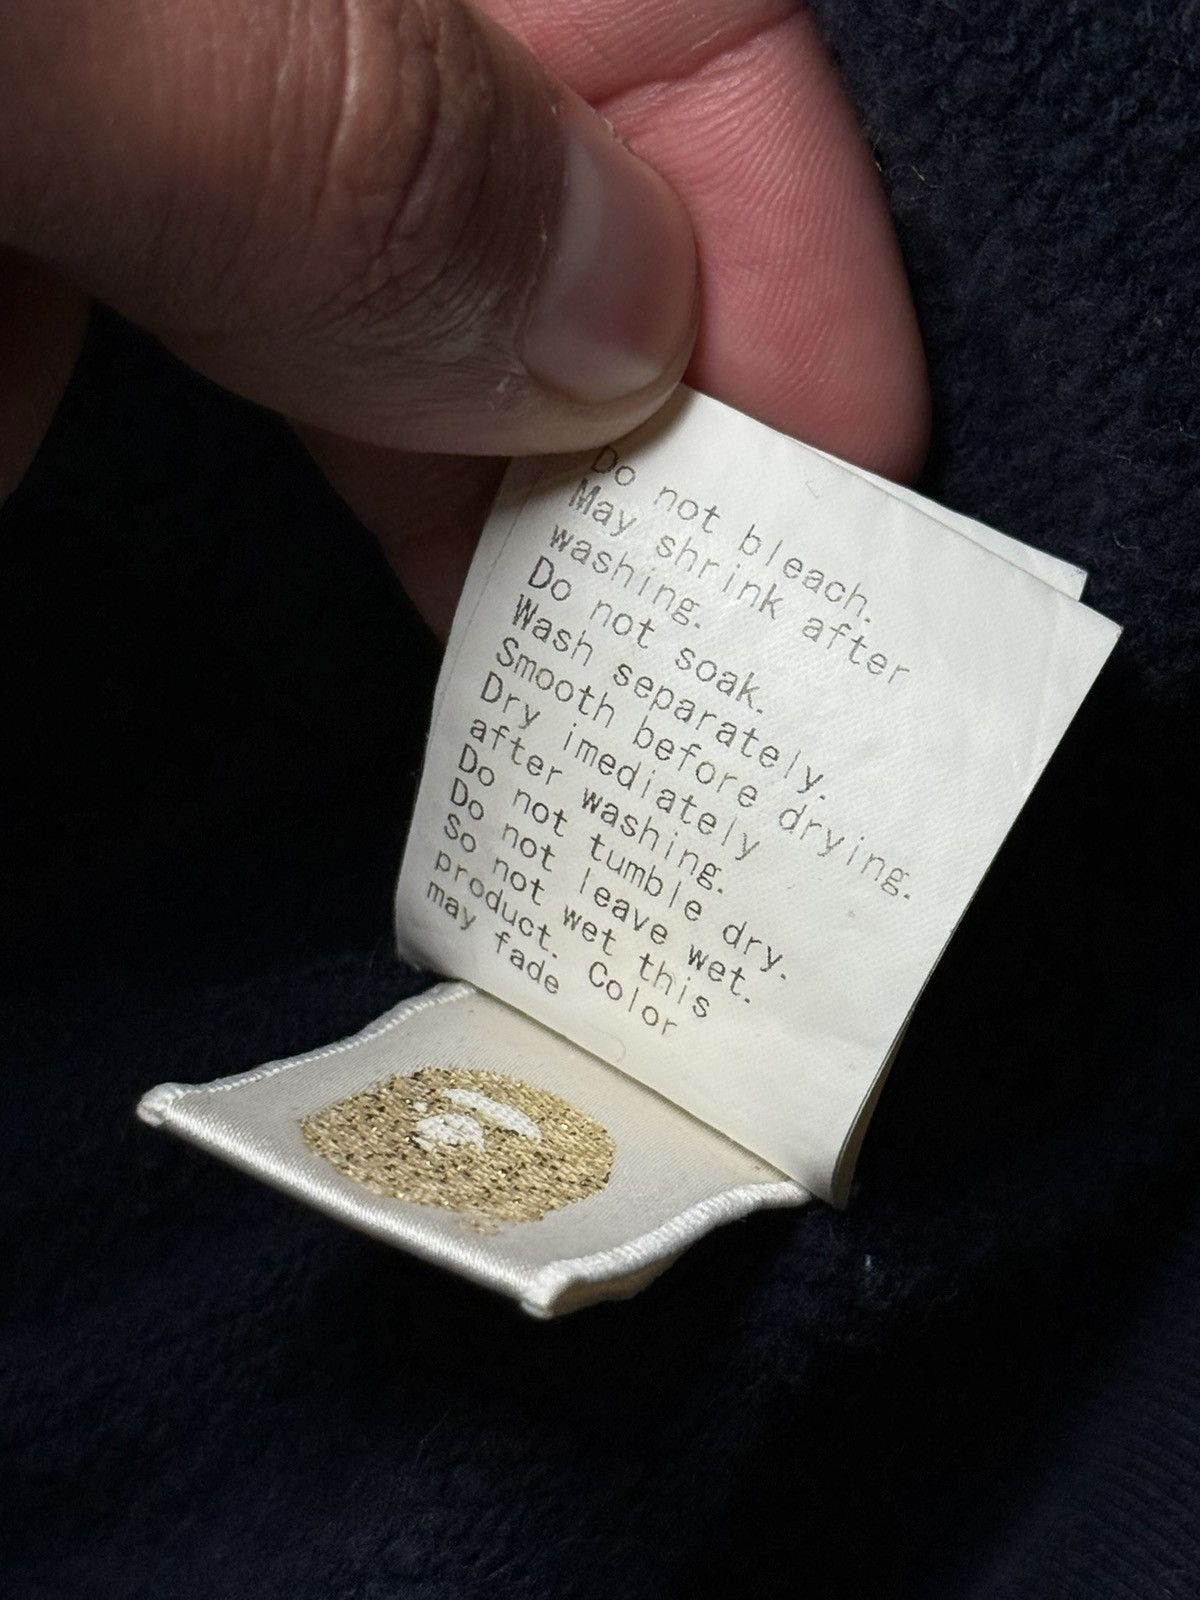 Do not bleach.
May shrink after
washing.
Do not soak.
Wash separately.
Smooth before drying.
Dry imediately
after washing.
Do not tumble dry.
Do not leave wet.
So not wet this
product. Color
may fade